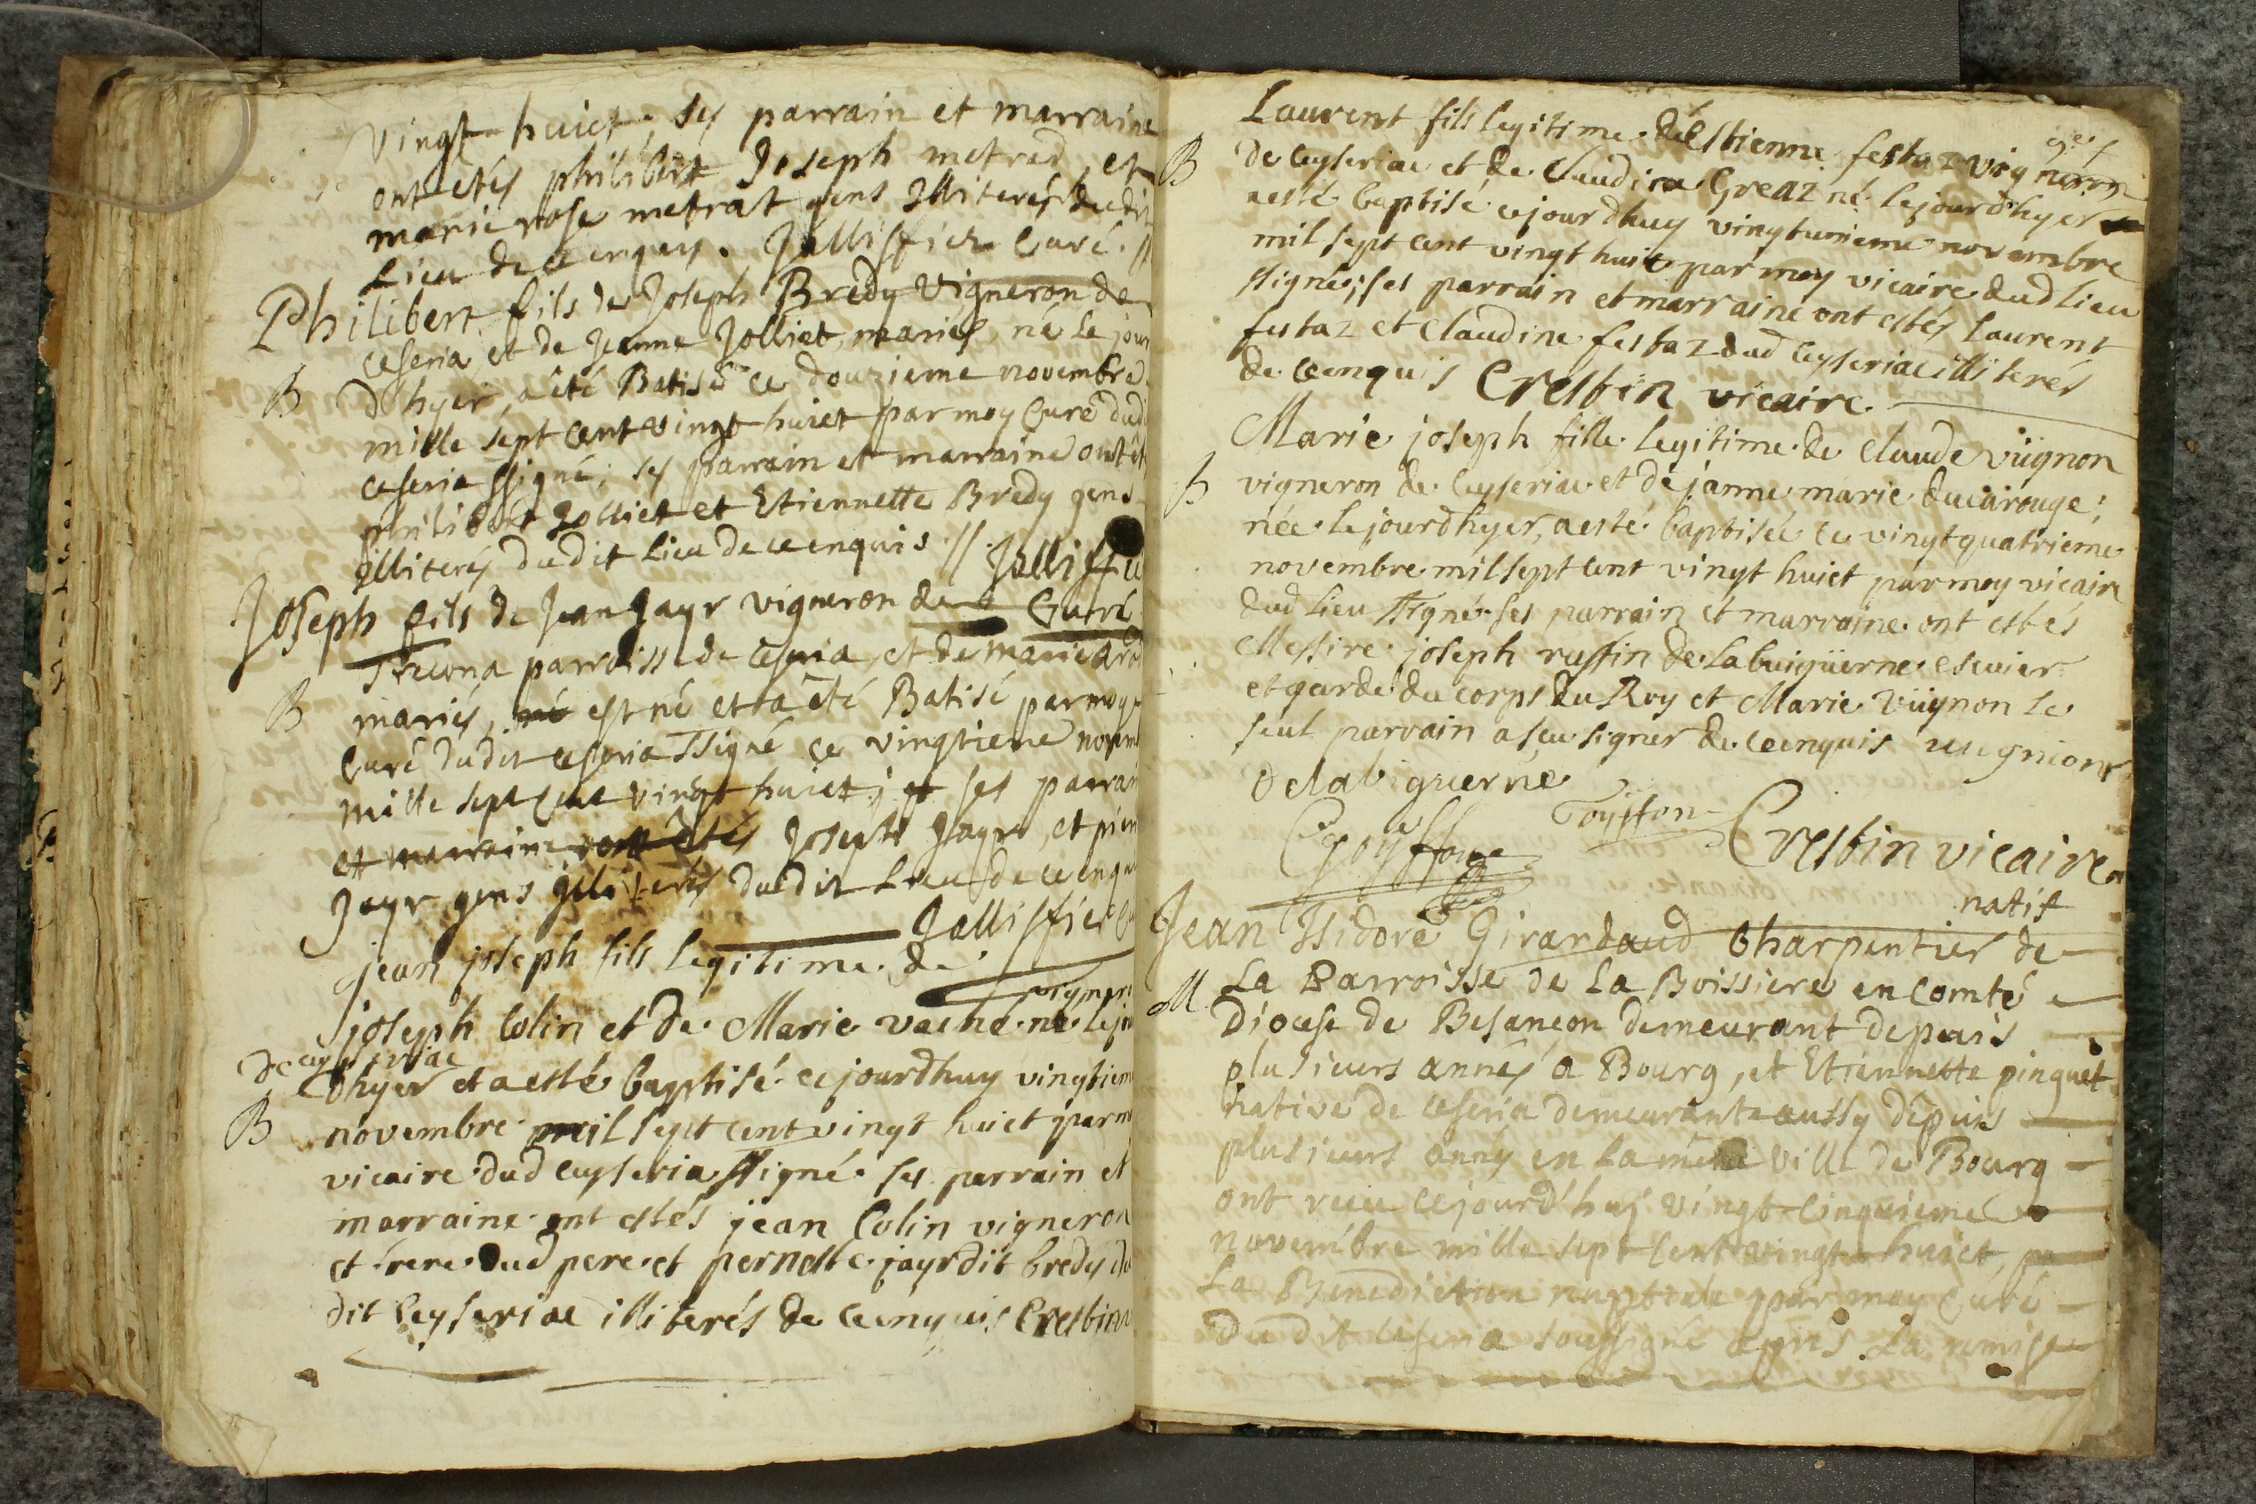 vingt-huict, ses parrain et marraine
ont etés philibert Joseph metrad, et
marie rose metrat gens illiterés du dit
Lieu de ce enquis. Jallissier Curé. //
Philibert fils de Joseph Bredy Vigneron de
Ceseria, et de Jeanne Jolliet, mariés, né le jour
B
d'hyer, a été Batisé ce douzieme novembre
mille sept cent vingt-huict par moy Curé dud
Ceseria ssigné; ses parrain et marraine ont
philibert Jolliet et Etiennette Bredy gens
illiterés du dit Lieu de ce enquis. // Jallissie
Joseph fils de Jean Jayr vigneron de Curé
parroisse de Ceseria, et de marie
B
mariés, né est né et a été Batisé par moy
Curé du dit Ceseria ssigné ce vingtieme
mille sept cent vingt huict; et ses parrain
et marraine ont etés Joseph Jayr, et
Jayr gens illiterés du dit Lieu de ce enquis
Jallissier
jean joseph fils legitime de
vigner
joseph Colin et de Marie vaché né le jour
de ceyseriac
d'hyer et a esté baptisé cejourdhuy vingtiem
B
novembre mil sept cent vingt huict par m
vicaire dud Ceyseria ssigné ses parrain et
marraine ont estés jean Colin vigneron
et frere dud pere et pernette jayr dit bredy du
dit Ceyseriac illiterés de ce enquis Crestin
Laurent fils legitime de Estienne festaz vigneron
B
de ceyseriac et de Claudine Greaz né le jour d'hyer
a esté baptisé cejourdhuy vingtunieme novembre
mil sept cent vingt huict par moy vicaire dud lieu
ssigné; ses parrain et marraine ont estés laurent
festaz et Claudine festaz dud Ceyseriac illiterés
de ce enquis Crestin vicaire.
Marie joseph fille legitime de Claude vügnon
B
vigneron de Ceyseriac et de janne marie ducarouge;
née le jour dhyer, a esté baptisée ce vingtquatrieme
novembre mil sept cent vingt huict par moy vicaire
dud lieu ssigné ses parrain et marraine ont estés
Messire joseph ruffin de labuigüerne escuier
et garde du corps du Roy et Marie vügnon le
seul parrain a sceu signer de ce enquis uugnion
delabiguerne
Goyffon Crestin vicaire
natif
Jean Isidore Girardaud Charpentier de
M
La Parroisse de La Boissiere en Comté
Diocese de Besancon demeurant depuis
plusieurs années a Bourg, et Etiennette pinguet
native de Ceseria demeurante aussy depuis
plusieurs annés en La méme ville de Bourg
ont reçu cejourd'huy vingt-cinquieme
novembre mille sept cent vingt-huict,
La Benediction nuptiale par moy Curé
Du dit Ceseria soussigné apres La remise